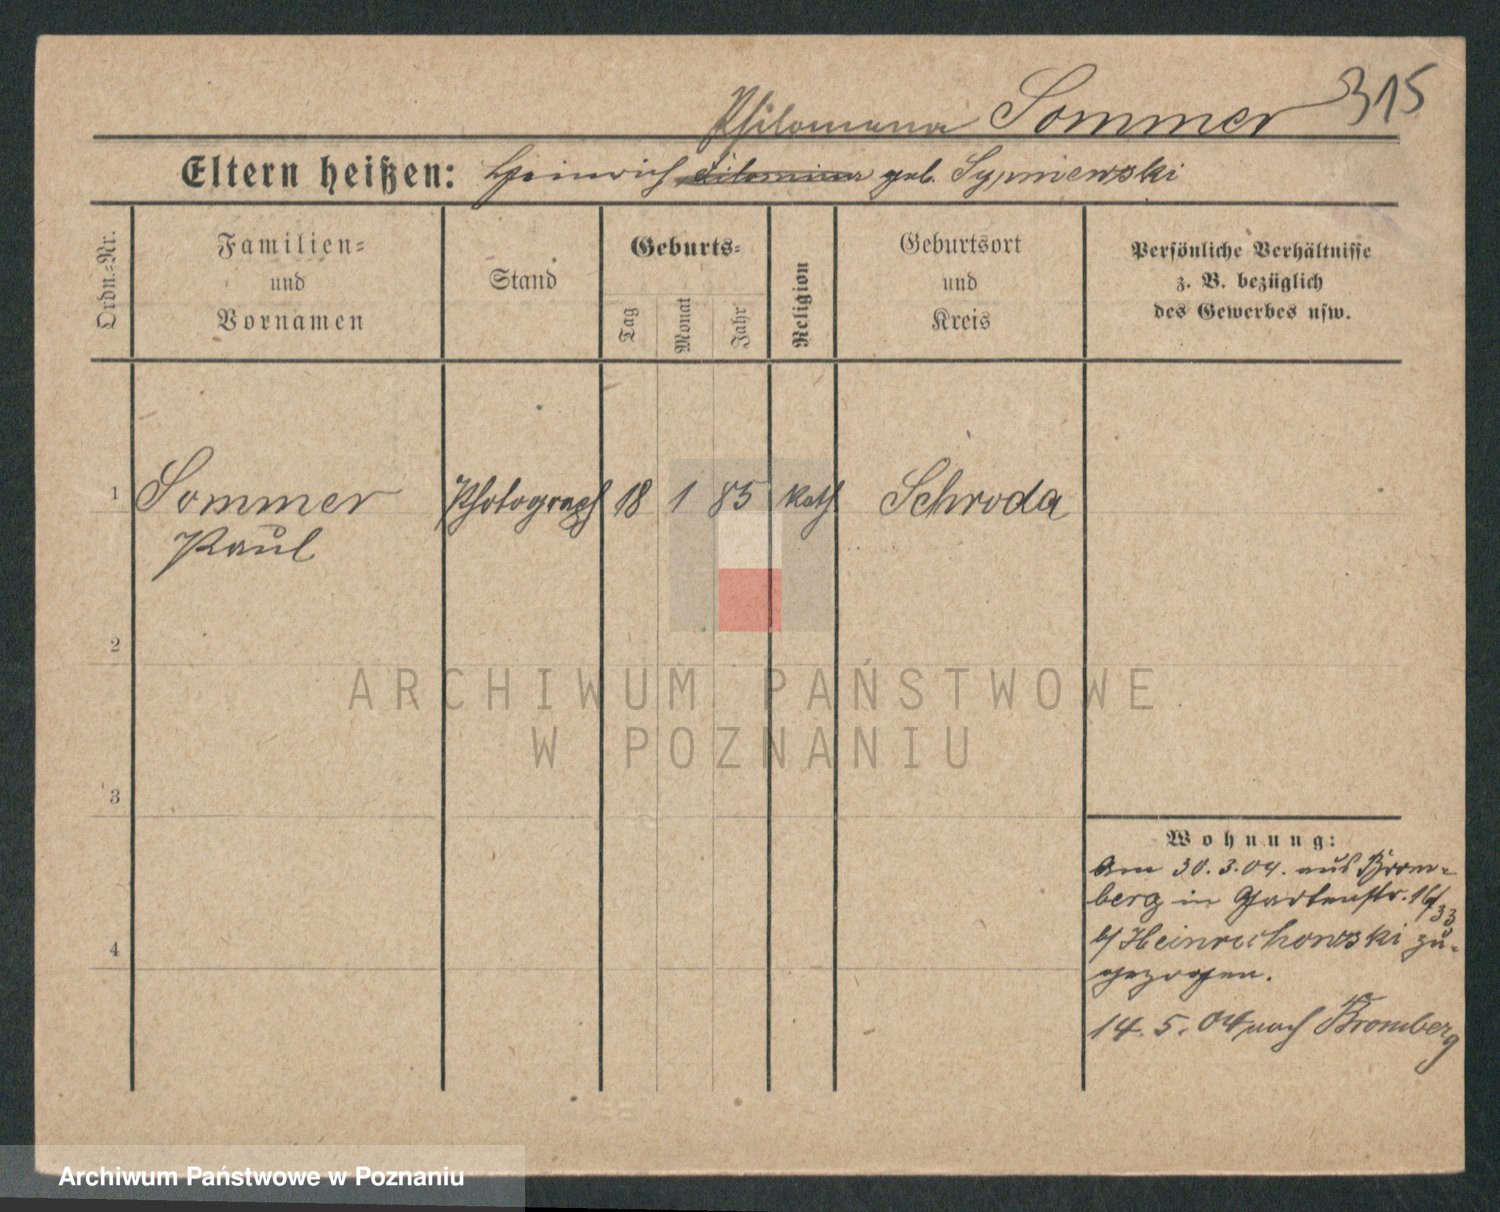 315
Philomena Sommer
Eltern heißen: Heinrich geb. Sypniewski
Ordn.-Nr.
Familien-
und
Vornamen
Stand
Geburts-
Tag
Monat
Jahr
Religion
Geburtsort
und
Kreis
Persönliche Verhältnisse
z. B. bezüglich
des Gewerbes usw.
1 Sommer Photograph 18 1 85 kath Schroda
Paul
2
3
4
Wohnung:
Am 30.3.04. aus Brom-
berg in Gartenstr. 16/33
b/ Heinrichowski zu-
gezogen.
14.5.04 nach Bromberg
ARCHIWUM PAŃSTWOWE
W POZNANIU
Archiwum Państwowe w Poznaniu